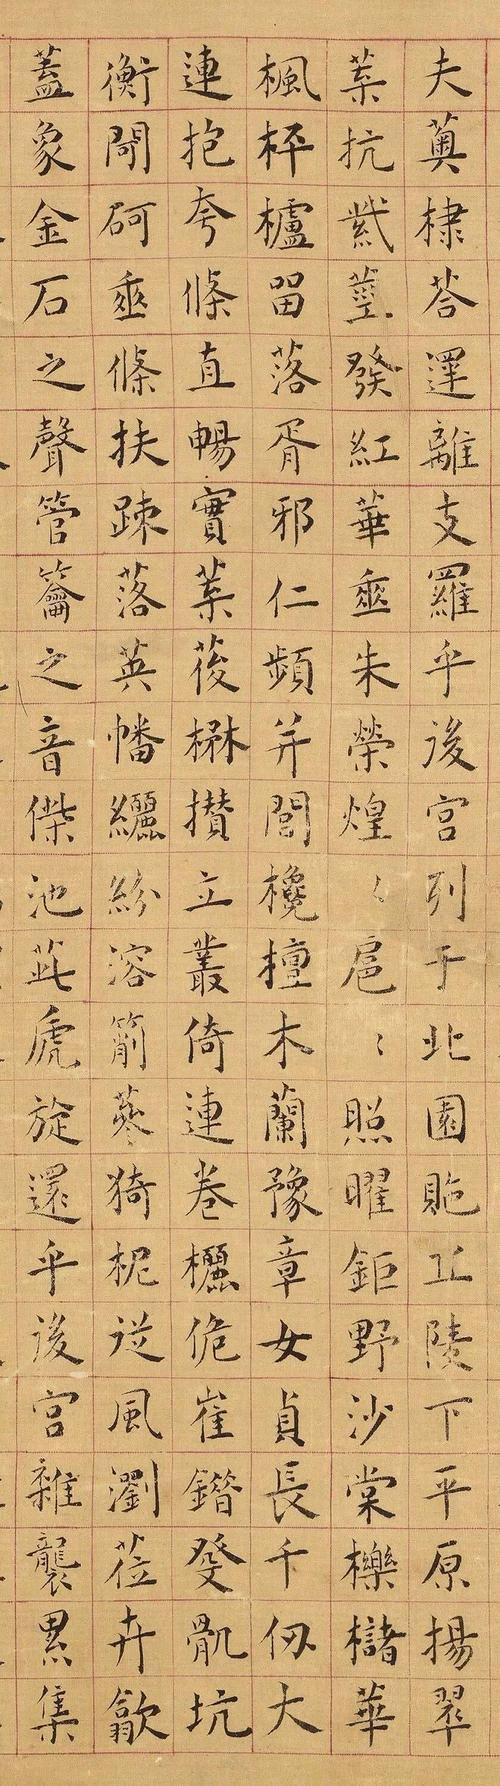 夫薁棣荅遝離支羅乎後宮列于北園貤丘陵下平原揚翠
葉抗紫莖發紅華垂朱榮煌〻扈〻照曜鉅野沙棠櫟櫧華
楓枰櫨留落胥邪仁頻并閭欃檀木蘭豫章女貞長千仞大
連抱夸條直暢實葉葰楙攢立叢倚連卷欐佹崔錯癹骫坑
衡閜砢垂條扶踈落英幡纚紛溶箾蔘猗柅從風瀏莅卉歙
蓋象金石之聲管籥之音偨池茈虒旋還乎後宮雜襲累集